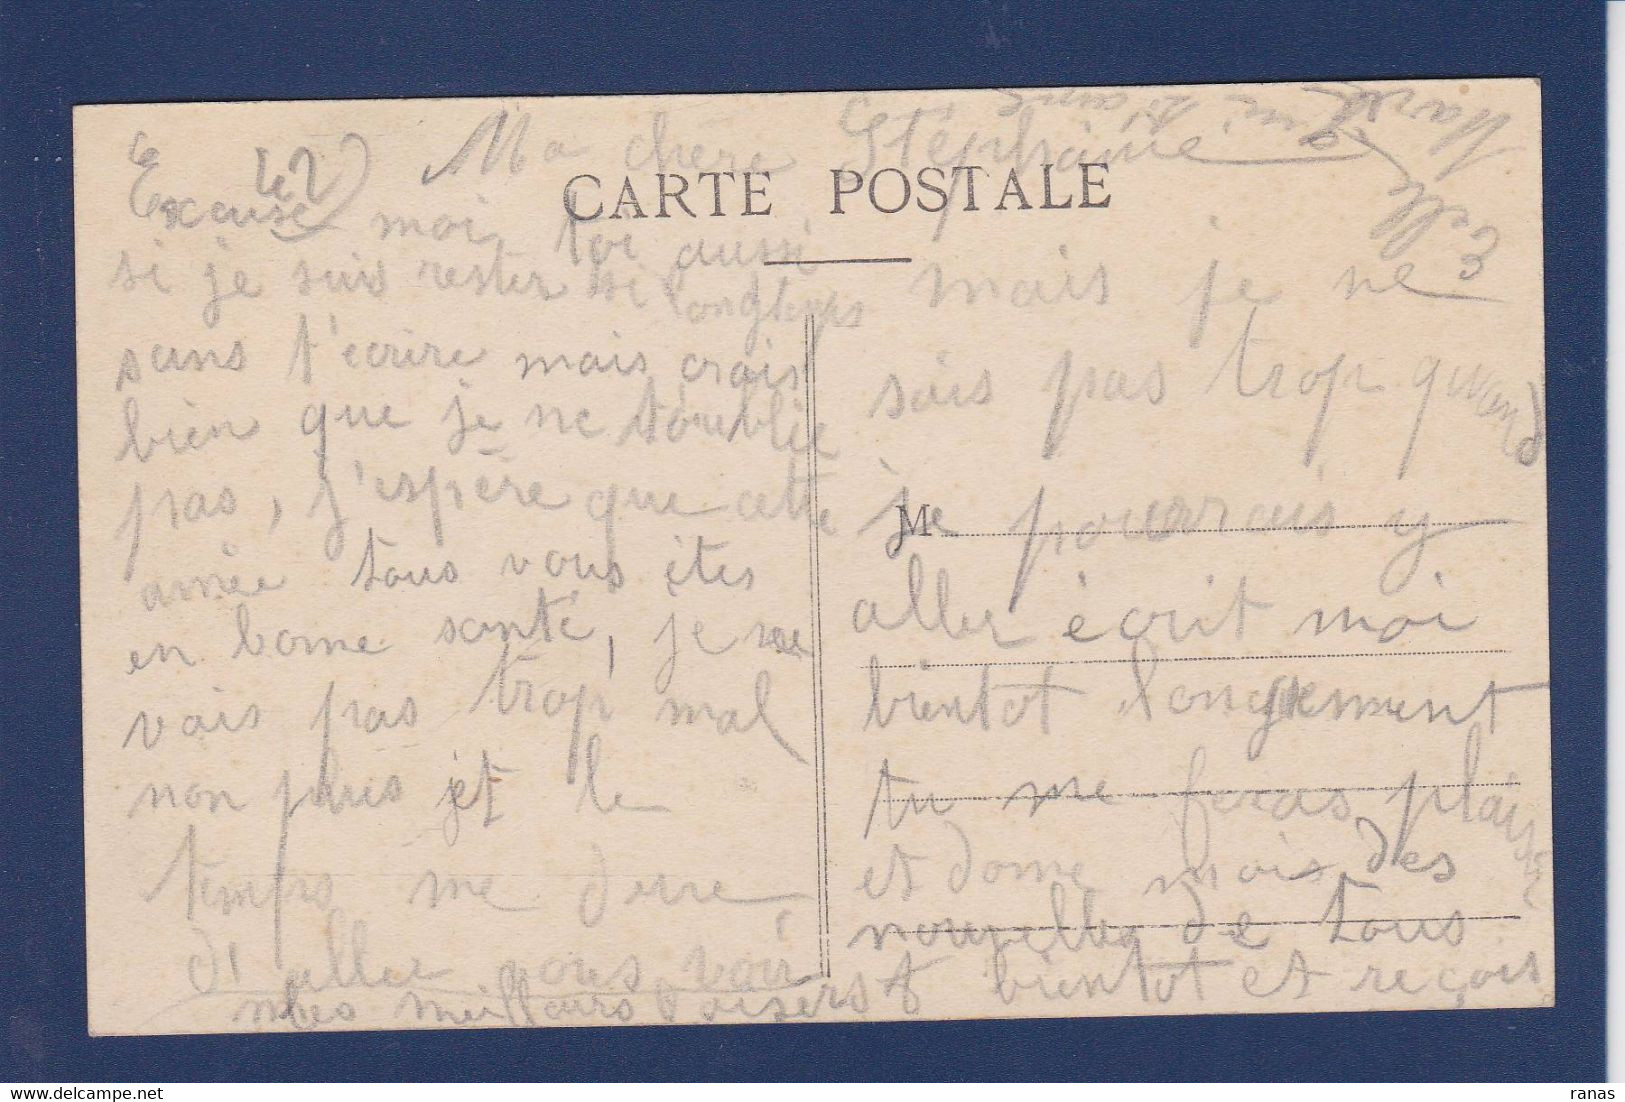 42
Ma chère Stéphanie
CARTE POSTALE
Excuse moi toi aussi
si je suis rester si longtemps
sans t'écrire mais crois
bien que je ne t'oublie
pas, j'espère que cette
année tous vous êtes
en bonne santé, je ne
vais pas trop mal
non plus et le
temps me dure
d'aller vous voir
mais je ne
sais pas trop quand
M
je pourrais y
aller écrit moi
bientot longuement
tu me feras plaisir
et donne mois des
nouvelles de tous
à bientot et reçois
mes meilleurs baisers
qui t'aime
Marcelle
ranas